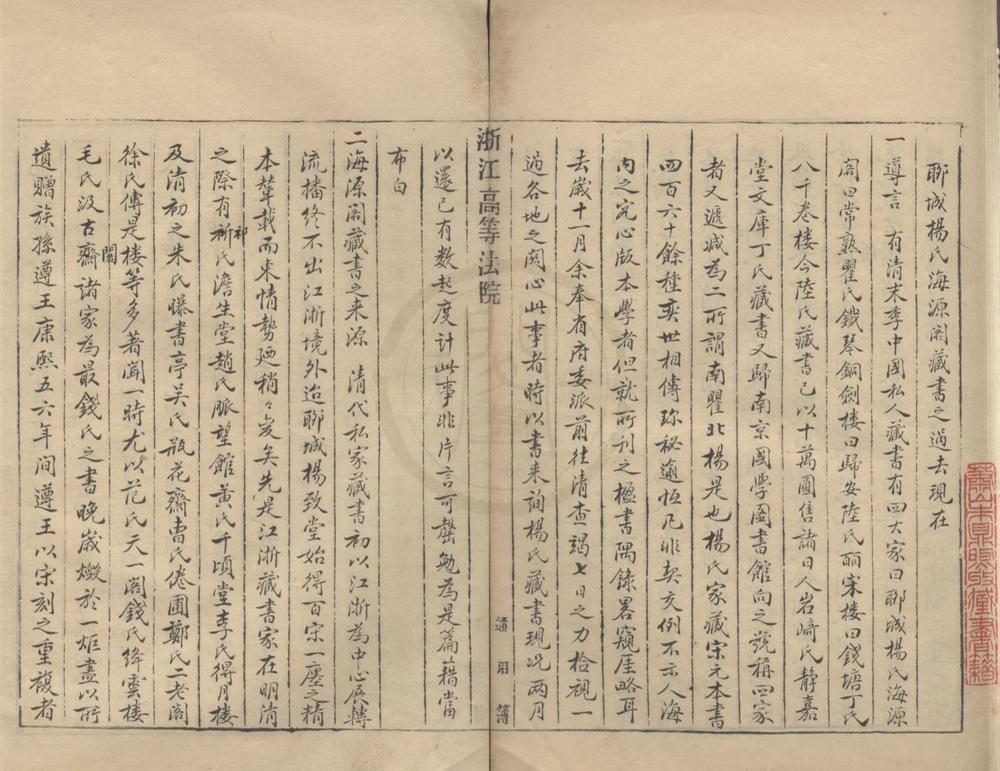 聊城楊氏海源閣藏書之過去現在
一導言　有清末季中國私人藏書有四大家曰聊城楊氏海源
閣曰常熟瞿氏鐵琴銅劍樓曰歸安陸氏皕宋樓曰錢塘丁氏
八千卷樓今陸氏藏書已以十萬圓售諸日人岩崎氏靜嘉
堂文庫丁氏藏書又歸南京國學圖書館向之號稱四家
者又遞減為二所謂南瞿北楊是也楊氏家藏宋元本書
四百六十餘種奕世相傳珍秘逾恒凡非契交例不示人海
內之究心版本學者但就所刊之楹書隅錄畧窺厓略耳
去歲十一月余奉省府委派前往清查竭七日之力檢視一
過各地之關心此事者時以書来詢楊氏藏書現况两月
以還已有數起度計此事非片言可罄勉為是篇藉當
布白
二海源閣藏書之来源　清代私家藏書初以江浙為中心展轉
流播終不出江浙境外迨聊城楊致堂始得百宋一廛之精
本輦載而東情勢廼稍々變矣先是江浙藏書家在明清
之際有祈氏澹生堂趙氏脈望館黄氏千頃堂李氏得月樓
祁
及清初之朱氏曝書亭吳氏瓶花齋曹氏倦圃鄭氏二老閣
徐氏傳是樓等多著聞一時尤以范氏天一閣錢氏絳雲樓
毛氏汲古齋諸家為最錢氏之書晚歲燬於一炬盡以所
閣
遺贈族孫遵王康熙五六年間遵王以宋刻之重複者
浙江高等法院
通用簿
蕭山朱鼎煦收藏書籍